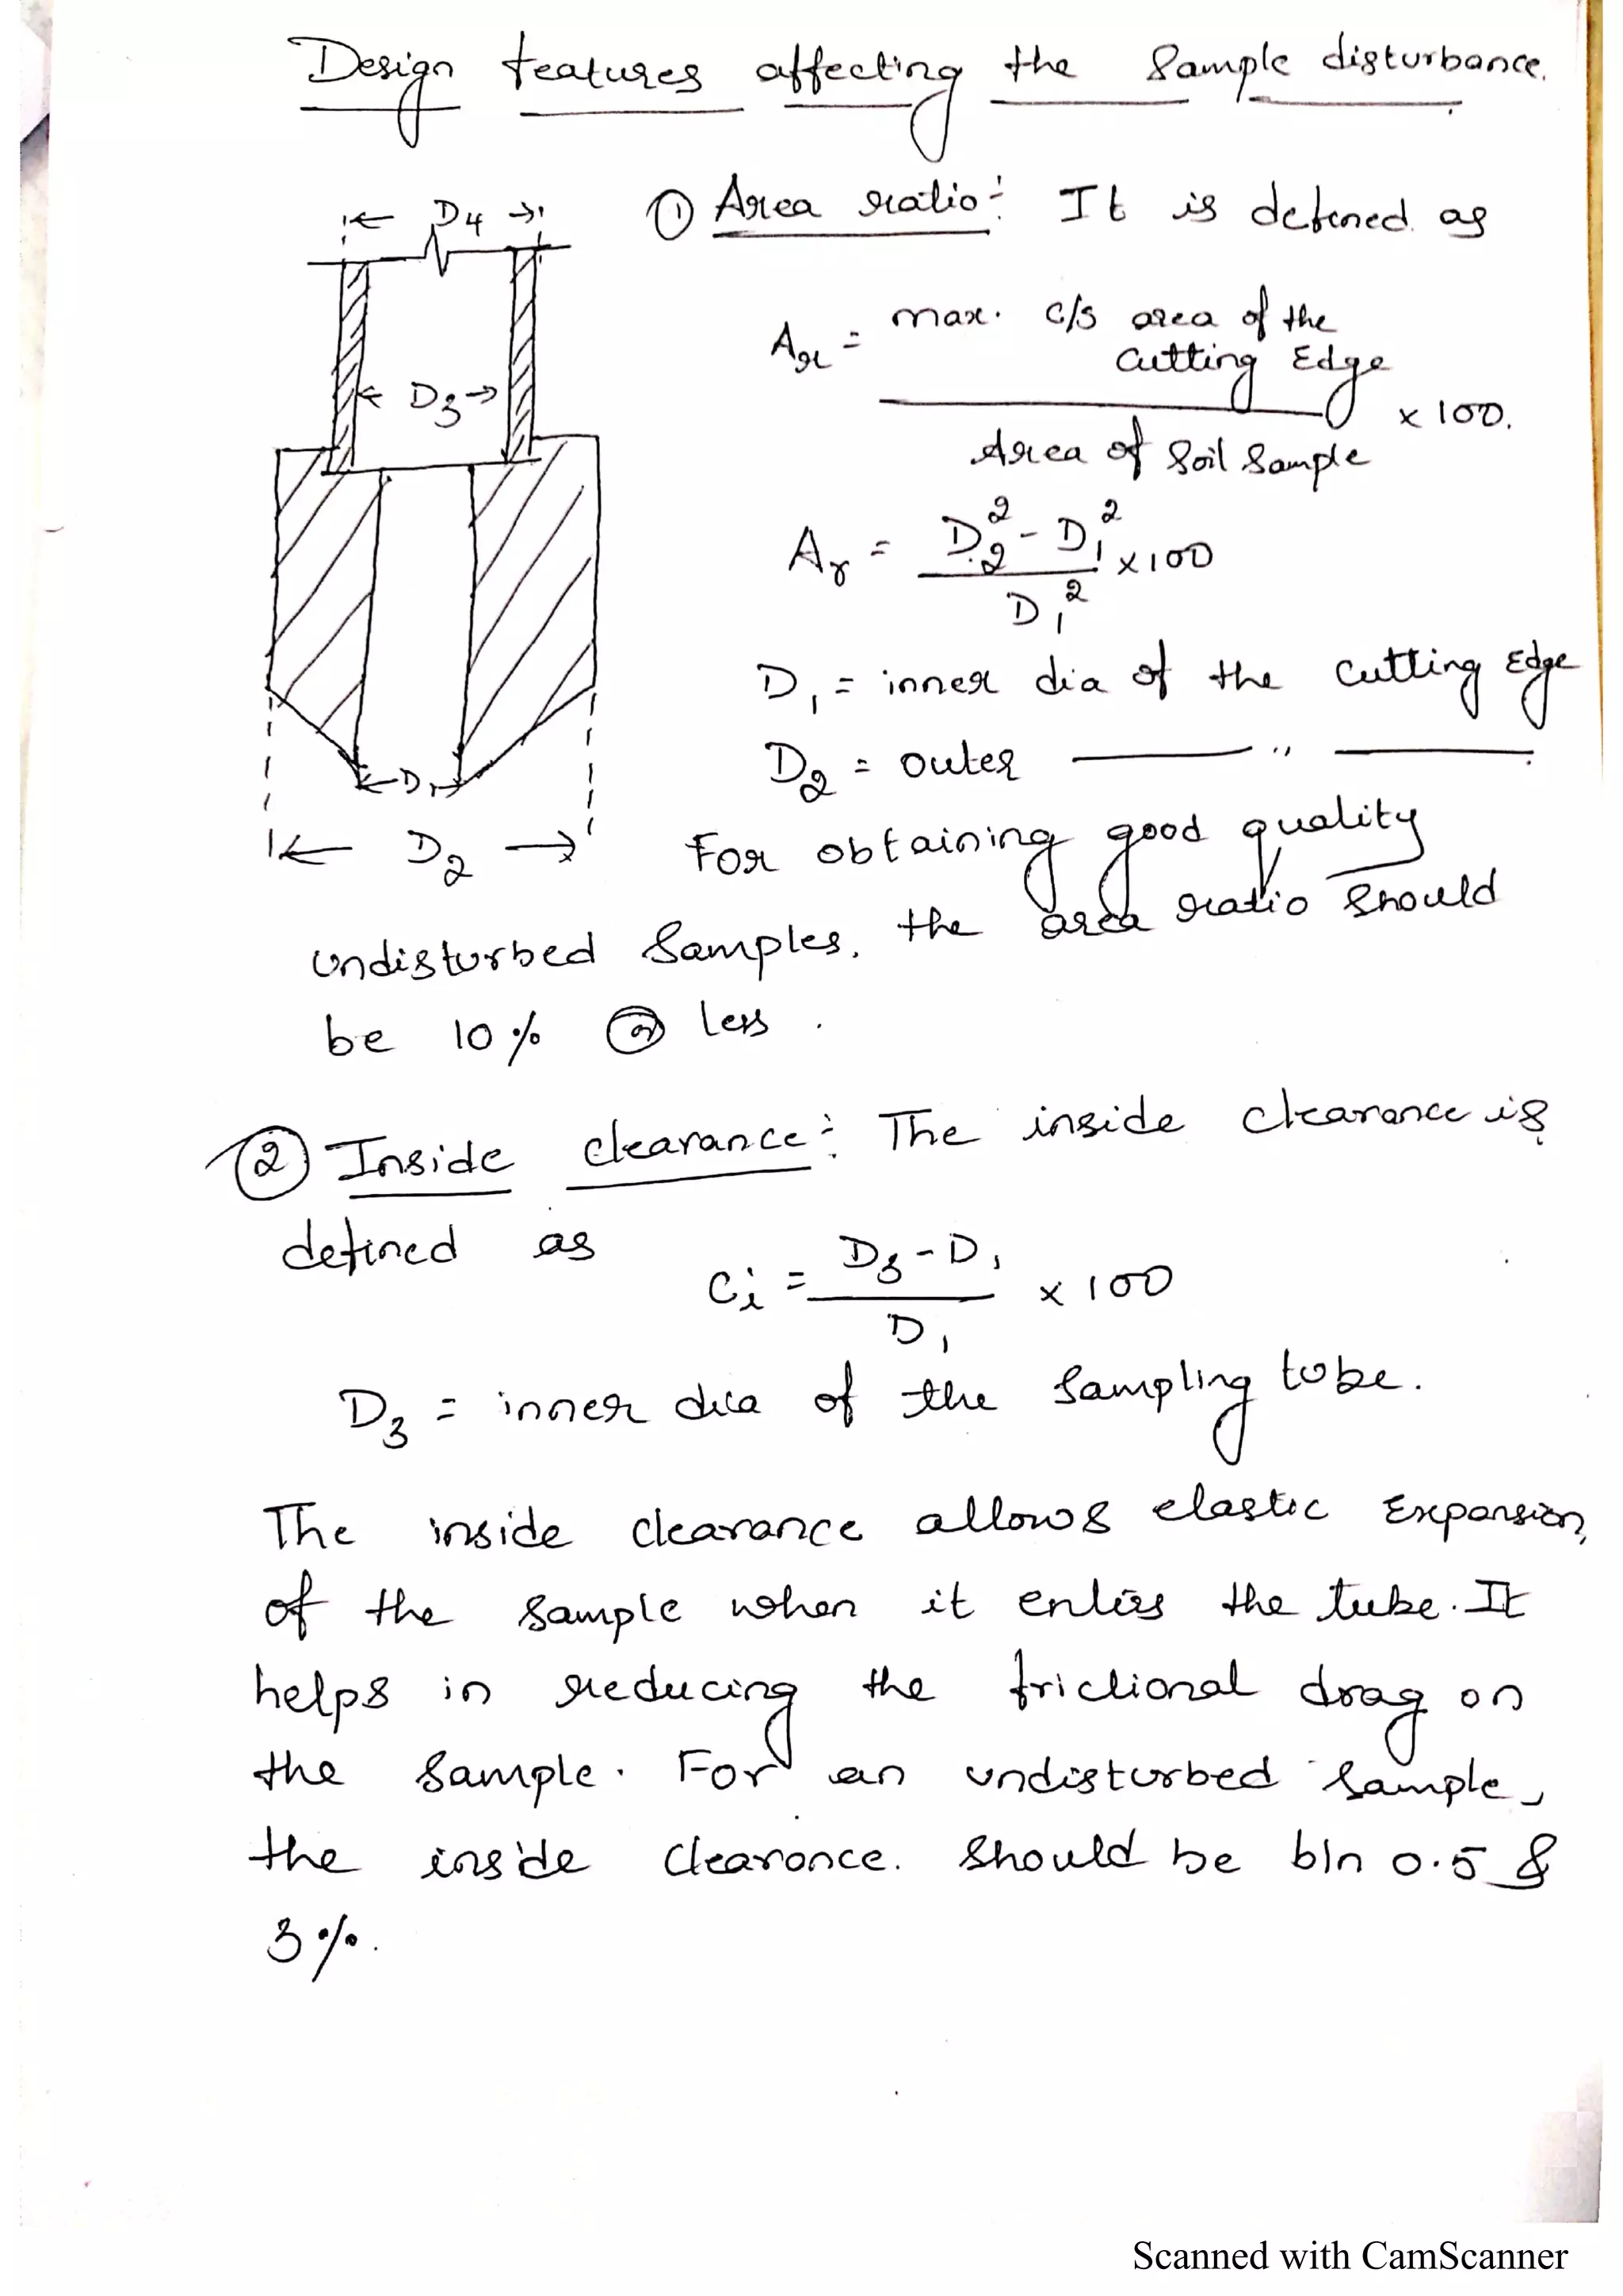 Design features affecting the Sample disturbance.
D4
① Area ratio: It is defined as
Ar = max. c/s area of the
Cutting Edge
x 100.
Area of Soil Sample
D3
Ar = D2² - D1² x 100
D1²
D1 = inner dia of the cutting Edge
D2 = outer —— " ——
D1
D2
For obtaining good quality
undisturbed Samples, the area ratio should
be 10% or less.
② Inside clearance: The inside clearance is
defined as
Ci = D3 - D1 x 100
D1
D3 = inner dia of the Sampling tube.
The inside clearance allows elastic Expansion
of the Sample when it enters the tube. It
helps in reducing the frictional drag on
the Sample. For an undisturbed Sample,
the inside clearance. should be b/n 0.5 &
3%.
Scanned with CamScanner